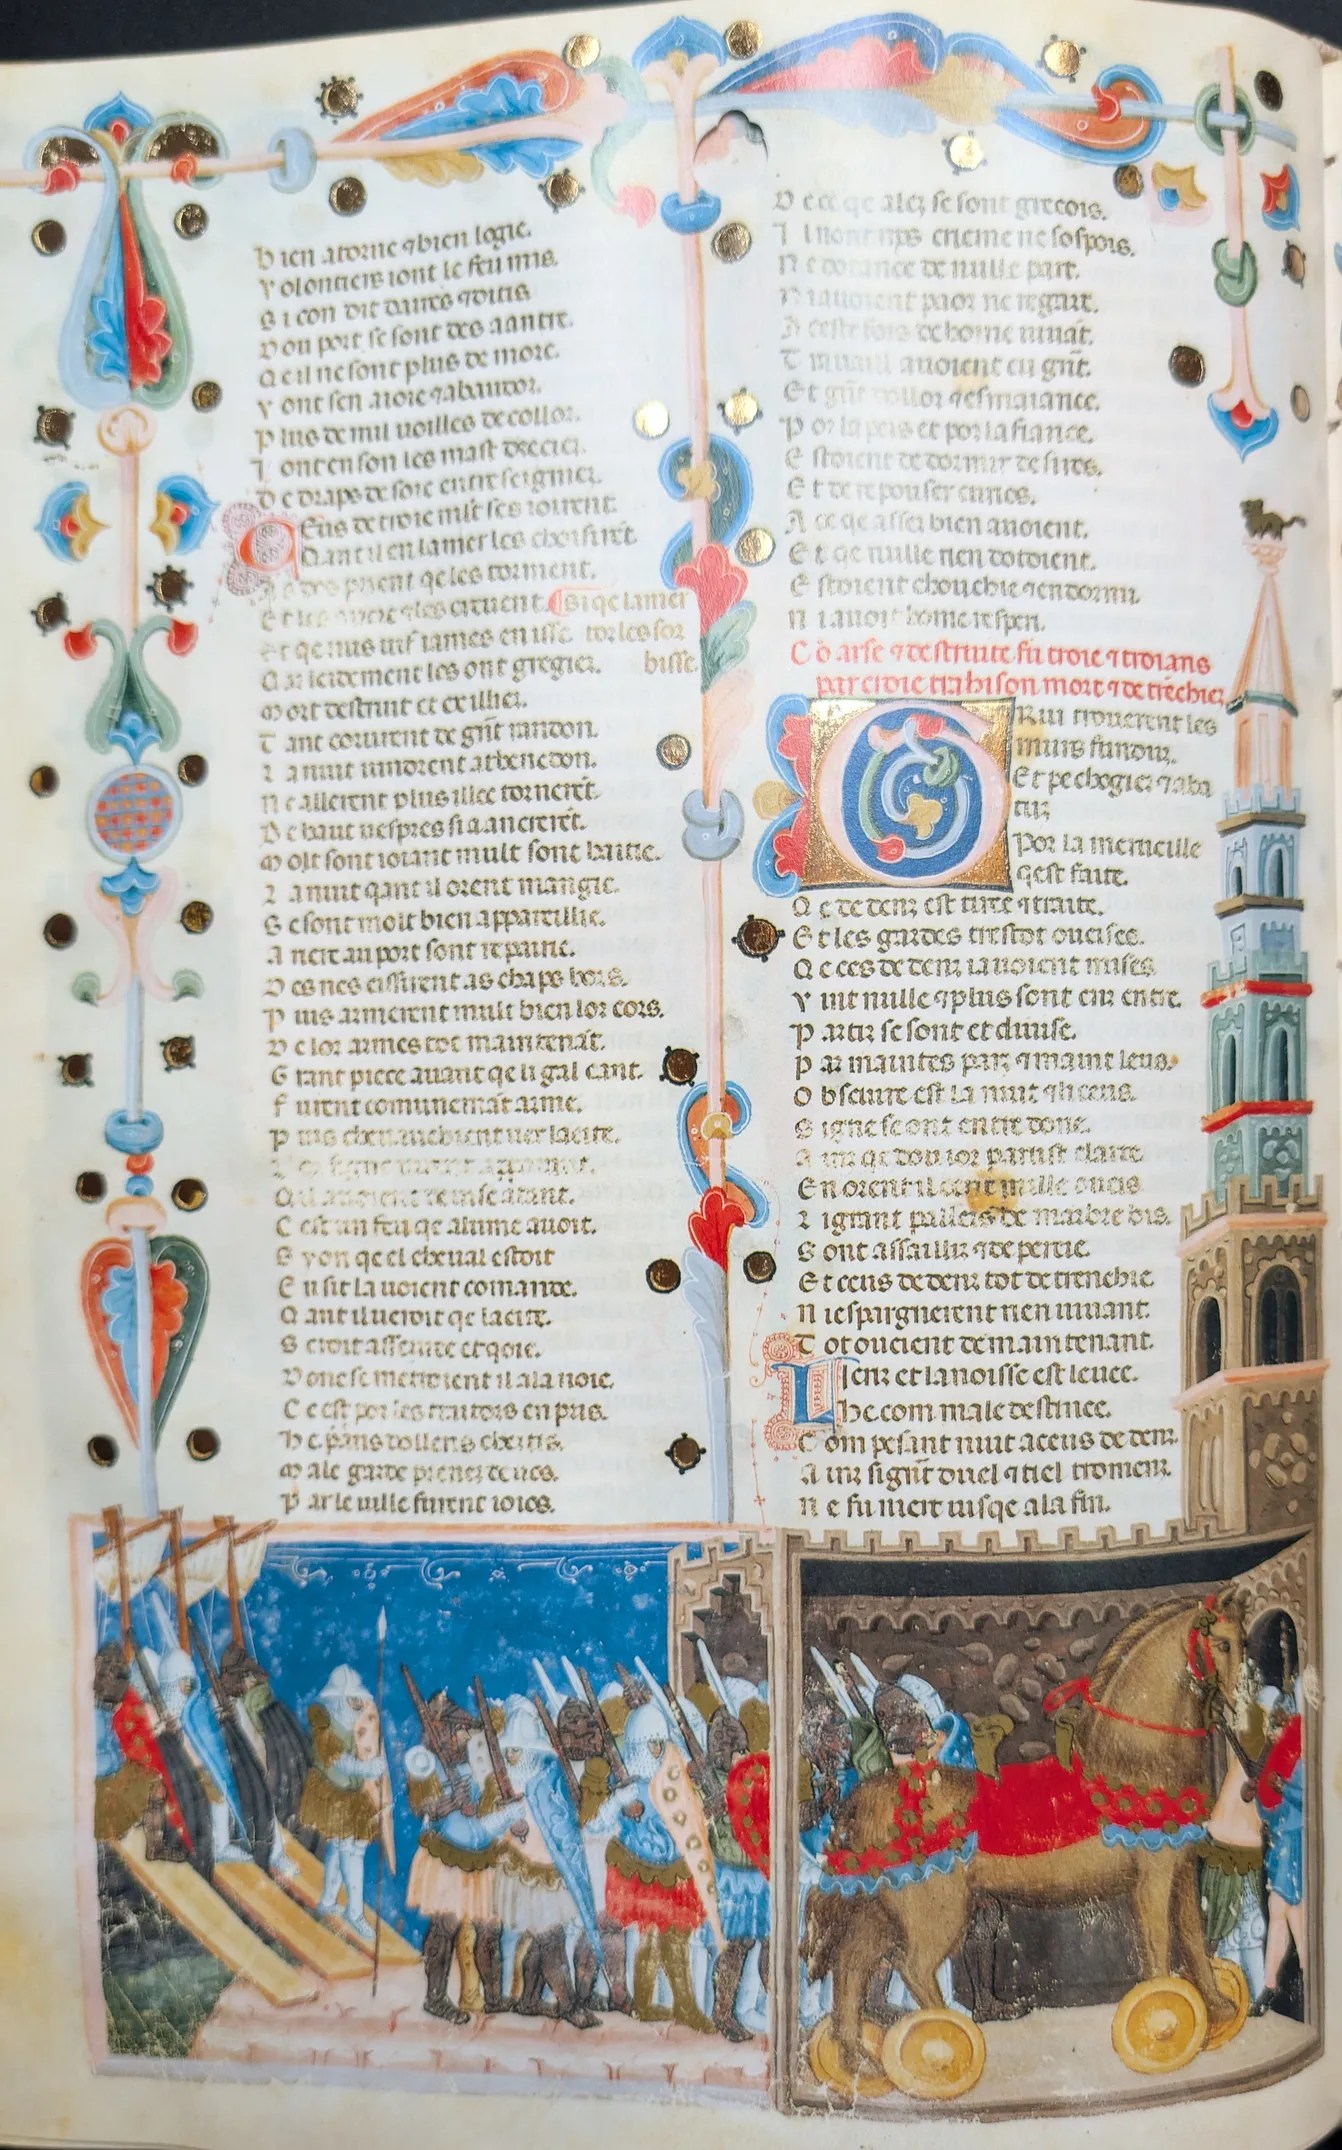 B ien atorne ⁊ bien logie.
V olontiers iont le feu mis.
S i con dit daires ⁊ ditis
D ou port se sont des aantre.
Q e il ne sont plus de more.
V ont sen a ioie ⁊ a baudor.
P lus de mil uoilles de collor.
I ont en son les mast drecier.
D e draps de soie entreseignier.
C Eus de troie mlt ses ioirent.
Q ant il en la mer les choisirēt
prient qe les torment.
E t les ⁊ les cituent. si qe la mer
E t qe nus uif iames en isse. tor les sor
Q ar leidement les ont gregiez. bisse.
M ort destruit et exillier.
T ant corurent de gñt randon.
L a nuit uindrent a thenedon.
N e allerent plus illec tornerēt.
D e haut uespres si a ancrerēt.
M olt sont ioiant mult sont haitie.
L a nuit qant il orent mangie.
S e sont molt bien appareillie.
A neit au port sont repairie.
D es nes eissirent as chaps hors.
P uis armerent mult bien lor cors.
D e lor armes tot maintenāt.
G rant piece auant qe li gal cant.
F urent comunemāt arme.
P uis cheuauchient uer la cite.
Q il auoient
C est un feu qe alume auoit.
S yon qe el cheual estoit
E nsi la uoient comande.
Q ant il ueroit qe la cite.
S eroit asseuree et qoie.
D onc se metroient il a la uoie.
C e est por les traitors en pris.
H e pans dollens cheitis.
M ale garde prenez de uos.
P ar le uille furent ioios.
D e ce qe alez se sont grecois.
I l n ont mes crieme ne sospois.
N e dotance de nulle part.
N i auoient paor ne regart.
A ceste fois de home uiuāt.
T rauaill auoient eu gñt.
E t gñt dollor ⁊ esmaiance.
P or la peis et por la fiance.
E stoient de dormir desirs.
E t de repouser
A ce qe assez bien auoient.
E t qe nulle rien dotoient.
E stoient chouchie ⁊ endormi.
N i auoit home resperi.
C ō arse ⁊ destruite fu troie ⁊ troians
par cvoie trahison mort ⁊ detrēchiez
G Riu trouerent les
murs fundur.
Et pechogiez ⁊ aba
tuz
Por la merueille
qest faite.
Q e de denz est tirée ⁊ traite.
E t les gardes trestot oucises.
Q e ces de denz i auoient mises
V int mille ⁊ plus sont enz entre.
P artiz se sont et diuise.
P ar maintes parz ⁊ maint leus.
O bscure est la nuit ⁊ hieus.
S igne se ont entre done.
A inz qe dou ior parust clarte
E n orent il cent mille oucis
L i grant palleis de marbre bis.
S ont assailliz ⁊ depercie.
E t ceus de denz tot detrenchie
N i espargnerent rien uiuant.
T ot oucient de maintenant.
L I criz et la noisse est leuee.
He com male destinee.
C om pesant nuit a ceus de denz.
A inz si gñt duel ⁊ tiel tormenz.
N e fu niert iusqe a la fin.